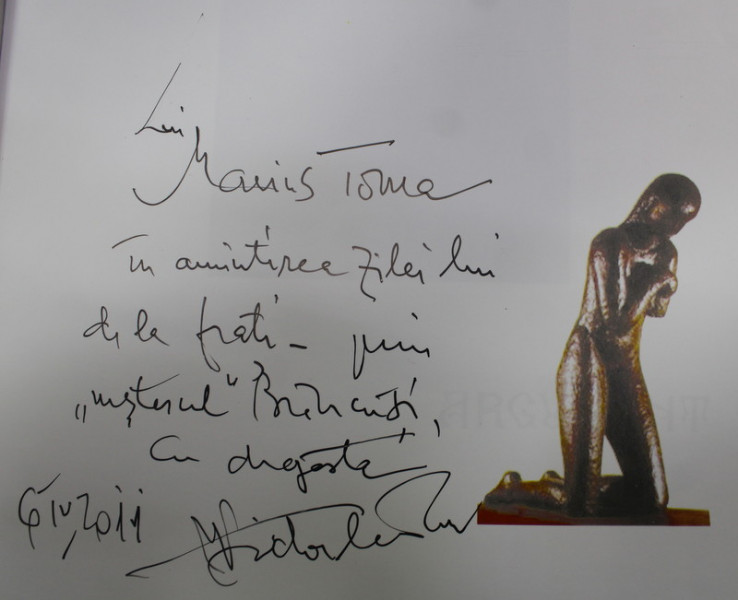 Lui
Marius Toma
în amintirea zilei lui
de la frați – prin
„meșterul” Brâncuși,
Cu dragoste
6 IV, 2011